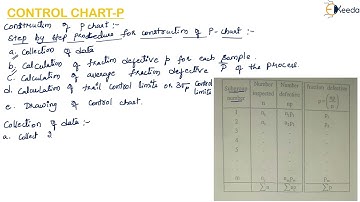 CONTROL CHART-P
Keeda
Construction of P chart :-
Step by step procedure for construction of P-chart :-
a, Collection of data
b, Calculation of fraction defective p for each sample.
c. Calculation of average fraction defective p̄ of the process.
d. Calculation of trail control limits or 3σp control limits
e. Drawing of control chart.
Collection of data :-
a. Collect 2
Subgroup number
Number inspected n
Number defective np
Fraction defective p = (np/n)
1
2
3
4
5
m
Σn
Σnp